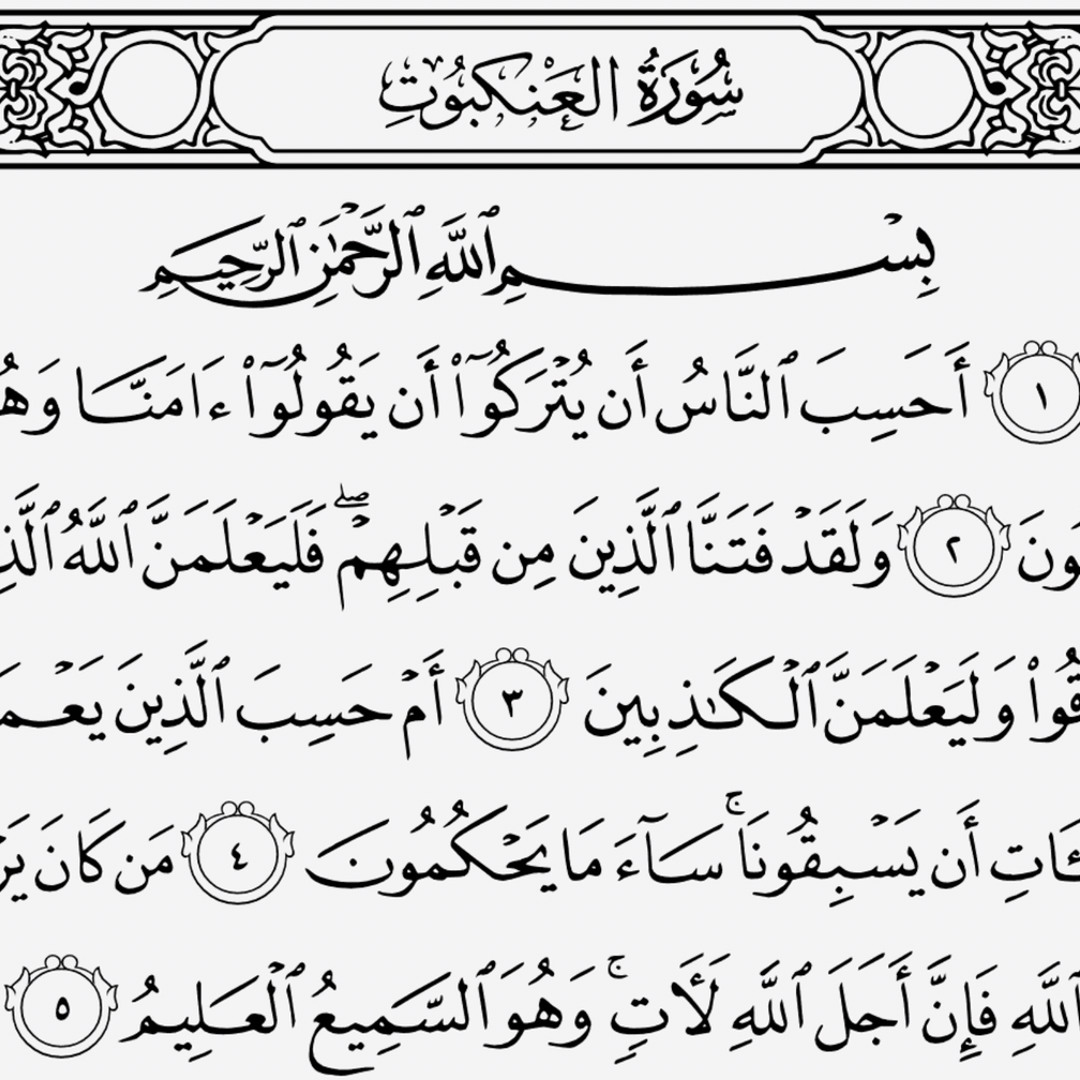 سُورَةُ العَنكَبُوتِ
بِسۡمِ ٱللَّهِ ٱلرَّحۡمَٰنِ ٱلرَّحِيمِ
١ أَحَسِبَ ٱلنَّاسُ أَن يُتۡرَكُوٓاْ أَن يَقُولُوٓاْ ءَامَنَّا وَهُ
ونَ ٢ وَلَقَدۡ فَتَنَّا ٱلَّذِينَ مِن قَبۡلِهِمۡۖ فَلَيَعۡلَمَنَّ ٱللَّهُ ٱلَّذِ
قُواْ وَلَيَعۡلَمَنَّ ٱلۡكَٰذِبِينَ ٣ أَمۡ حَسِبَ ٱلَّذِينَ يَعۡمَ
ـَٔاتِ أَن يَسۡبِقُونَاۚ سَآءَ مَا يَحۡكُمُونَ ٤ مَن كَانَ يَرۡ
ٱللَّهِ فَإِنَّ أَجَلَ ٱللَّهِ لَأٓتٖۚ وَهُوَ ٱلسَّمِيعُ ٱلۡعَلِيمُ ٥